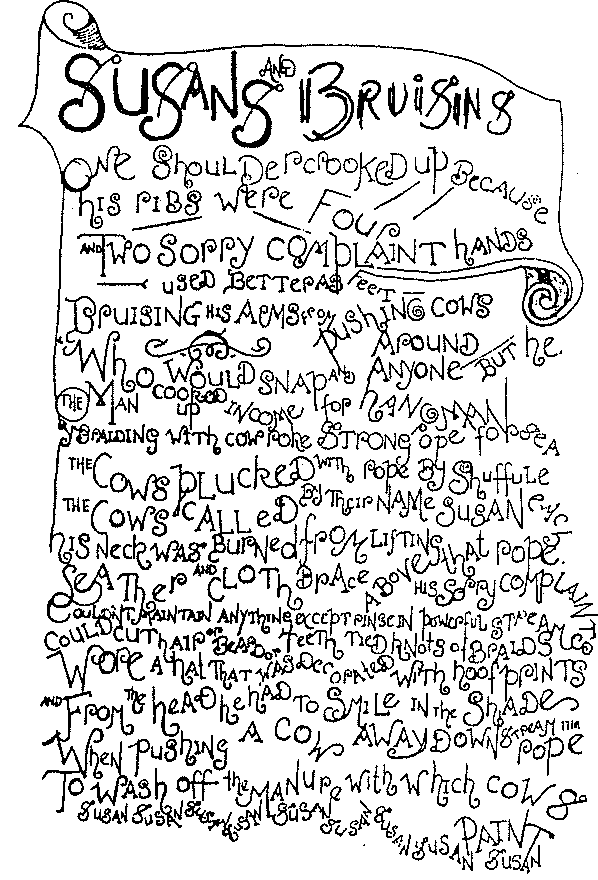 SUSANS AND BRUISING
ONE SHOULDER CROOKED UP BECAUSE
HIS RIBS WERE FOUR
AND TWO SORRY COMPLAINT HANDS
USED BETTER AS FEET
BRUISING HIS ARMS FROM PUSHING COWS
AROUND
WHO WOULD SNAP AND ANYONE BUT HE
THE MAN COOKED UP INCOME FOR HANGMAN
BRAIDING WITH COWPOKE STRONG ROPE FOR SEA
THE COWS PLUCKED WITH ROPE BY SHUFFULE
THE COWS CALLED BY THEIR NAME SUSAN
HIS NECK WAS BURNED FROM LIFTING THAT ROPE.
LEATHER AND CLOTH BRACE ABOVE HIS SORRY COMPLAINTS
COULDN'T MAINTAIN ANYTHING EXCEPT RINSE IN POWERFUL STREAMS
COULD CUT HAIR OR BEARD OR TEETH TIED KNOTS OF BRAIDS
WORE A HAT THAT WAS DECORATED WITH HOOFPRINTS
AND FROM THE HEAD HE HAD TO SMILE IN THE SHADE
WHEN PUSHING A COW AWAY DOWNSTREAM HIM ROPE
TO WASH OFF THE MANURE WITH WHICH COWS
PAINT
SUSAN SUSAN SUSAN SUSAN SUSAN SUSAN SUSAN SUSAN SUSAN